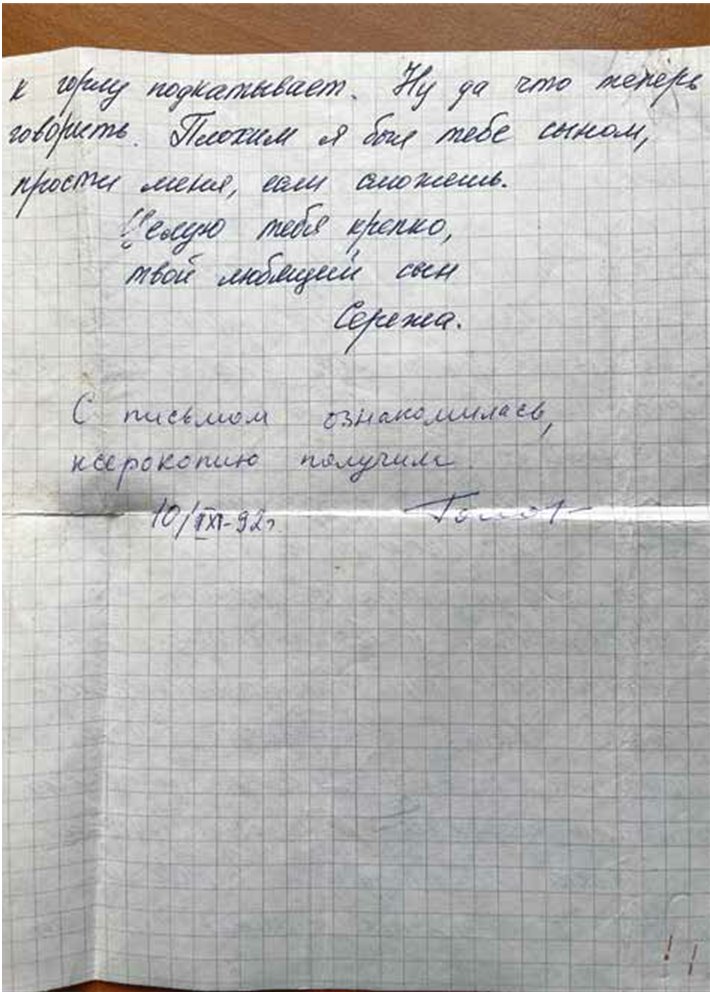 к горлу подкатывает. Ну да что теперь
говорить. Плохим я был тебе сыном,
прости меня, если сможешь.
Целую тебя крепко,
твой любящий сын
Сережа.
С письмом ознакомилась,
ксерокопию получила.